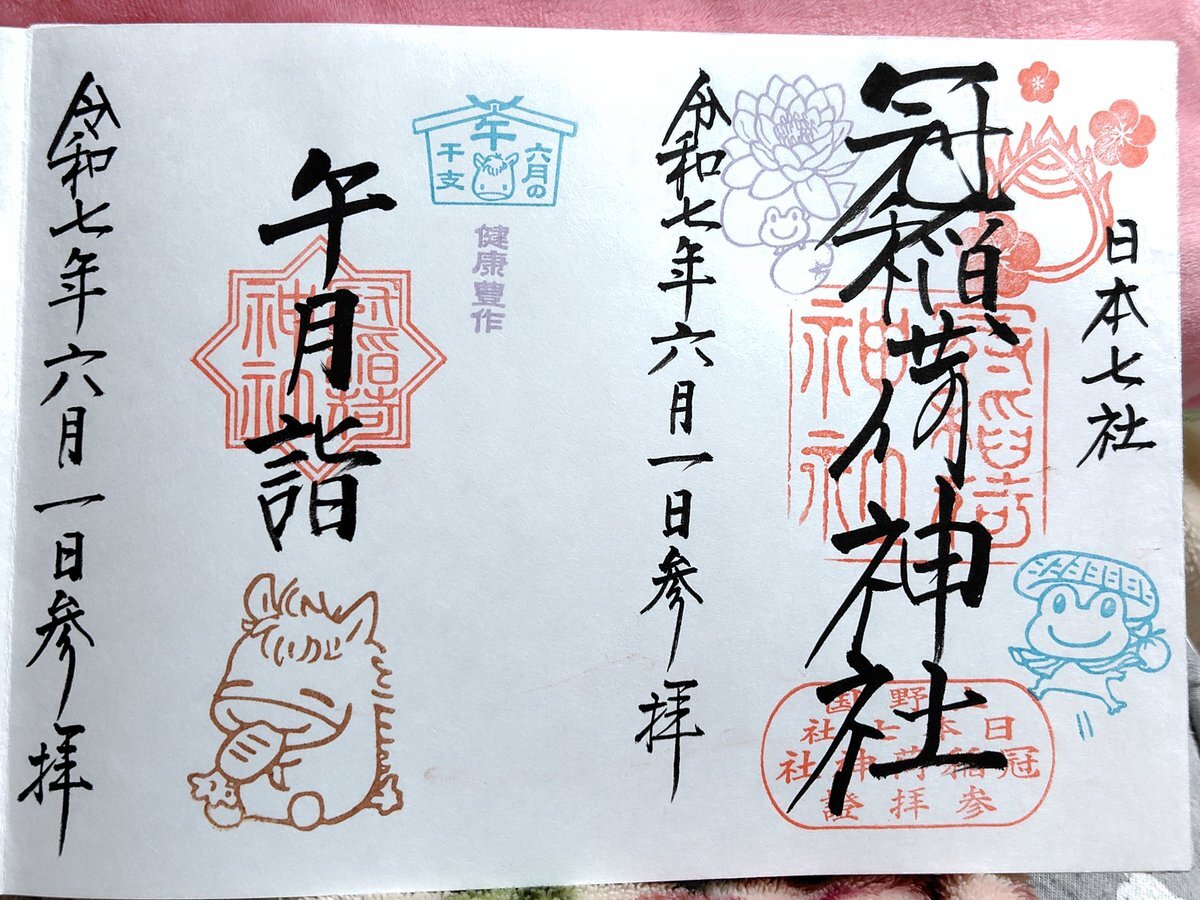 日本七社
冠稲荷神社
冠稲荷
神社
上野国
日本七社
冠稲荷神社
参拝證
令和七年六月一日参拝
六月の
午
干支
健康豊作
午月詣
冠稲荷
神社
令和七年六月一日参拝